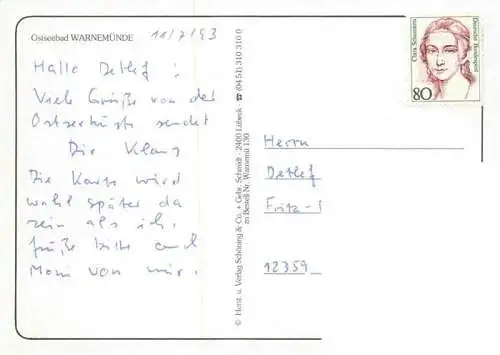 Ostseebad WARNEMÜNDE
11/7/93
Hallo Detlef!
Viele Grüße von der
Ostseeküste sendet
Die Klaus
Die Karte wird
wohl später da
sein als ich.
Grüße bitte auch
Moni von mir.
© Horst. u. Verlag Schöning & Co. + Gebr. Schmidt · 2400 Lübeck · ☎ (04 51) 310 310 0
zu Bestell-Nr. Warnemü 130
Clara Schumann
Deutsche Bundespost
80
Herrn
Detlef
Fritz-
12359